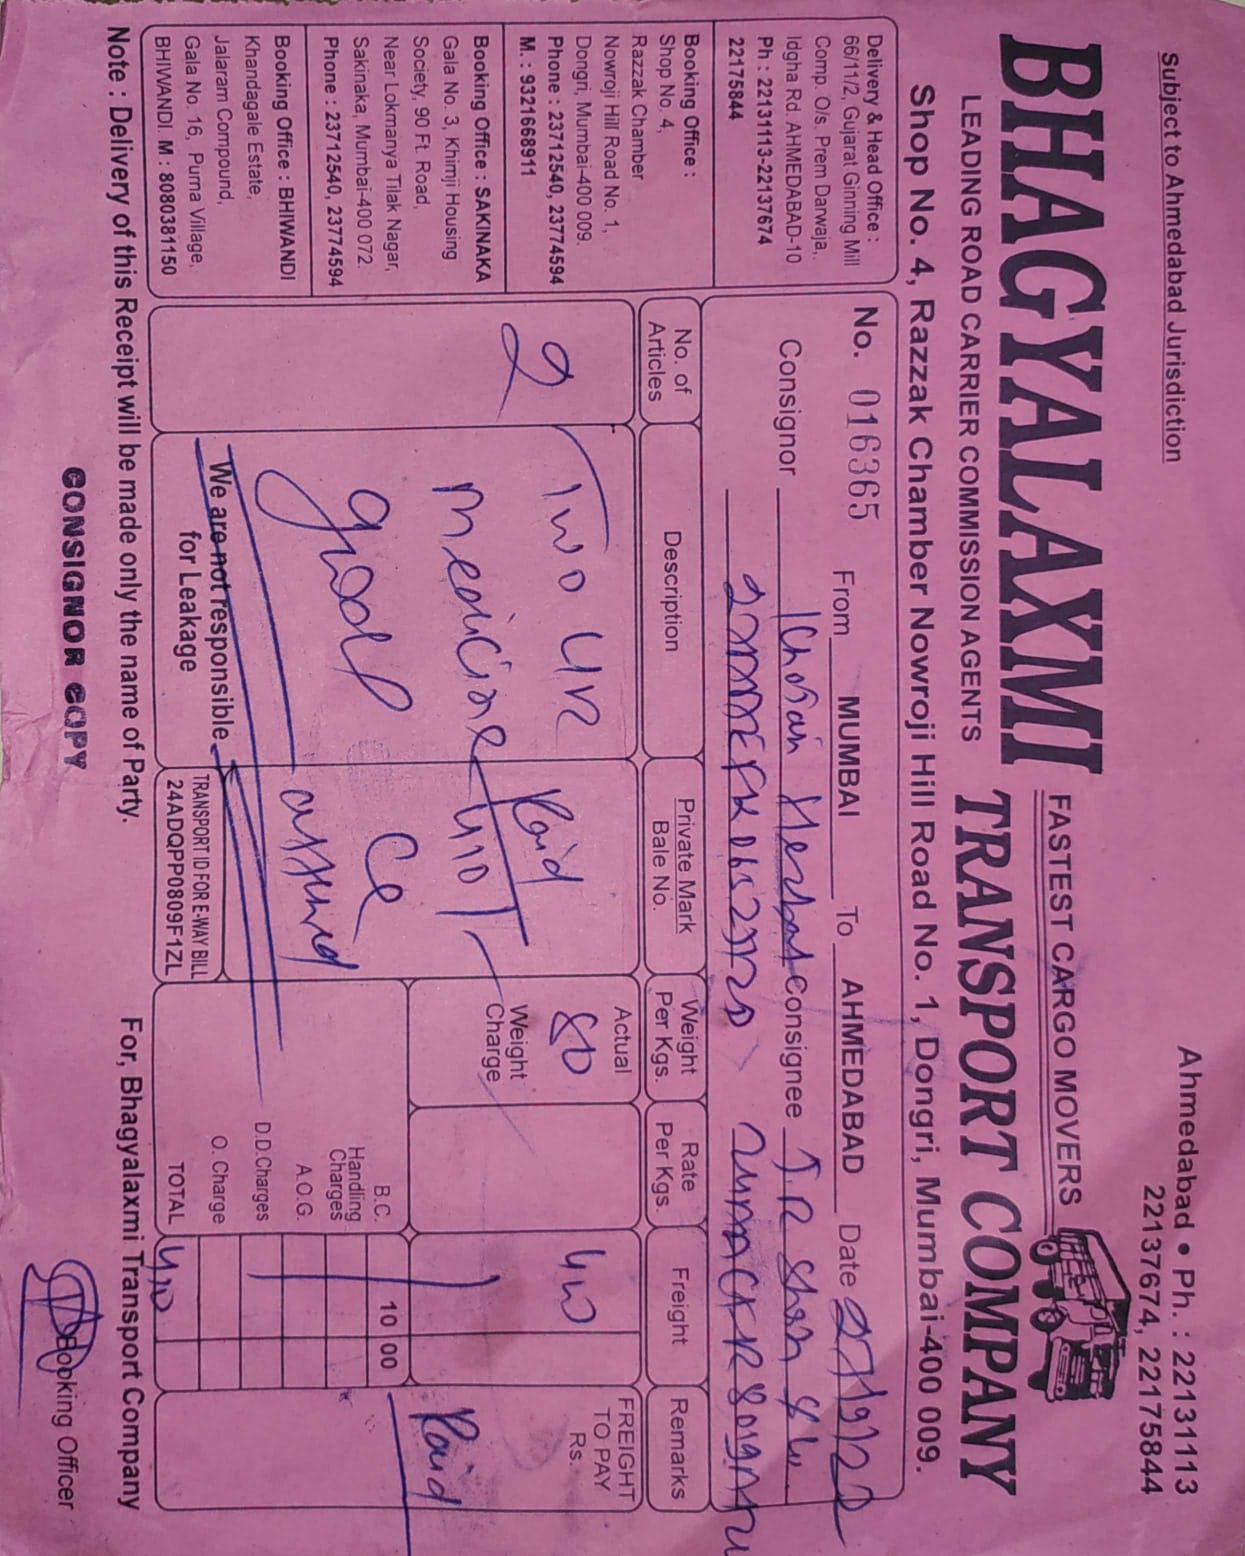 Subject to Ahmedabad Jurisdiction
Ahmedabad • Ph. : 22131113
22137674, 22175844
BHAGYALAXMI
FASTEST CARGO MOVERS
LEADING ROAD CARRIER COMMISSION AGENTS
TRANSPORT COMPANY
Shop No. 4, Razzak Chamber Nowroji Hill Road No. 1, Dongri, Mumbai-400 009.
Delivery & Head Office :
66/11/2, Gujarat Ginning Mill
Comp. O/s. Prem Darwaja,
Idgha Rd. AHMEDABAD-10
Ph : 22131113-22137674
22175844
Booking Office :
Shop No. 4,
Razzak Chamber
Nowroji Hill Road No. 1,
Dongri, Mumbai-400 009.
Phone : 23712540, 23774594
M. : 9321668911
Booking Office : SAKINAKA
Gala No. 3, Khimji Housing
Society, 90 Ft. Road,
Near Lokmanya Tilak Nagar,
Sakinaka, Mumbai-400 072.
Phone : 23712540, 23774594
Booking Office : BHIWANDI
Khandagale Estate,
Jalaram Compound,
Gala No. 16, Purna Village,
BHIWANDI M : 8080381150
No. 016365 From MUMBAI To AHMEDABAD Date
Consignor Consignee J.R
No. of Articles Description Private Mark Bale No. Weight Per Kgs. Rate Per Kgs. Freight Remarks
2 Two Paid Actual 80 FREIGHT TO PAY Rs.
medicine Weight Charge Paid
good
B.C. 10 00
Handling Charges
A.O.G.
D.D.Charges
O. Charge
TOTAL
We are not responsible
for Leakage
TRANSPORT ID FOR E-WAY BILL
24ADQPP0809F1ZL
Note : Delivery of this Receipt will be made only the name of Party.
For, Bhagyalaxmi Transport Company
CONSIGNOR COPY
Booking Officer